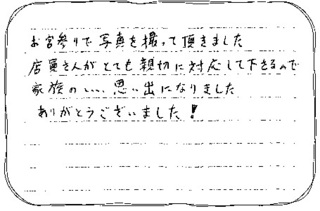 お宮参りで写真を撮って頂きました
店員さんがとても親切に対応して下さるので
家族のいい、思い出になりました
ありがとうございました!